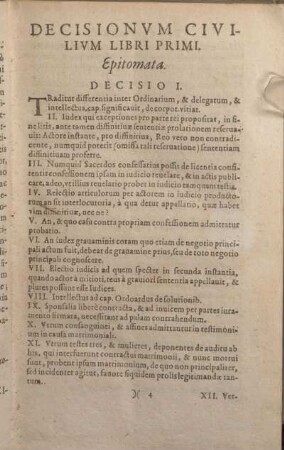 DECISIONVM CIVI-
LIVM LIBRI PRIMI,
Epitomata.
DECISIO I.
TRaditur differentia inter Ordinarium, & delegatum, &
intellectus, cap. significauit, de corpor. vitiat.
II. Iudex qui exceptiones pro parte rei propositas, in fi-
ne litis, ante tamen diffinitiuæ sententiæ prolationem reserua-
uit: Actore instante, pro diffinitiua, Reo vero non contradi-
cente, nunquid poterit (omissa tali reseruatione) sententiam
diffinitiuam proferre.
III. Nunquid Sacerdos confessarius possit de licentia confi-
tentis confessionem ipsam in iudicio tradere, & in actis publi-
care, adeo, vt illius reuelatio probet in iudicio tamquam testis.
IV. Reiectio articulorum per actorem in iudicio producto-
rum an sit interlocutoria, à qua detur appellatio, quæ habet
vim diffinitiuæ, nec ne?
V. An, & quo casu contra propriam confessionem admittatur
probatio.
VI. An iudex grauaminis coram quo etiam de negotio princi-
pali actum fuit, debeat de grauamine prius, seu de toto negotio
principali cognoscere.
VII. Electio iudicis ad quem spectet in secunda instantia,
quando actor à vltiori, reus à grauiori sententia appellauit, &
plures possent esse Iudices.
VIII. Intellectus ad cap. Odoardus de solutionib.
IX. Sponsalia libere contracta, & ad inuicem per partes iura-
mento firmata, necessitant ad palam contrahendum.
X. Verum consanguinei, & affines admittantur in testimoni-
um in caussa matrimoniali.
XI. Vtrum testes tres, & mulieres, deponentes de auditu ab
his, qui interfuerunt contractui matrimonii, & nunc mortui
sunt, probent ipsum matrimonium, de quo non principaliter,
sed incidenter agitur, fauore siquidem prolis legitimandæ tan-
tum.
)( 4 XII. Ver-